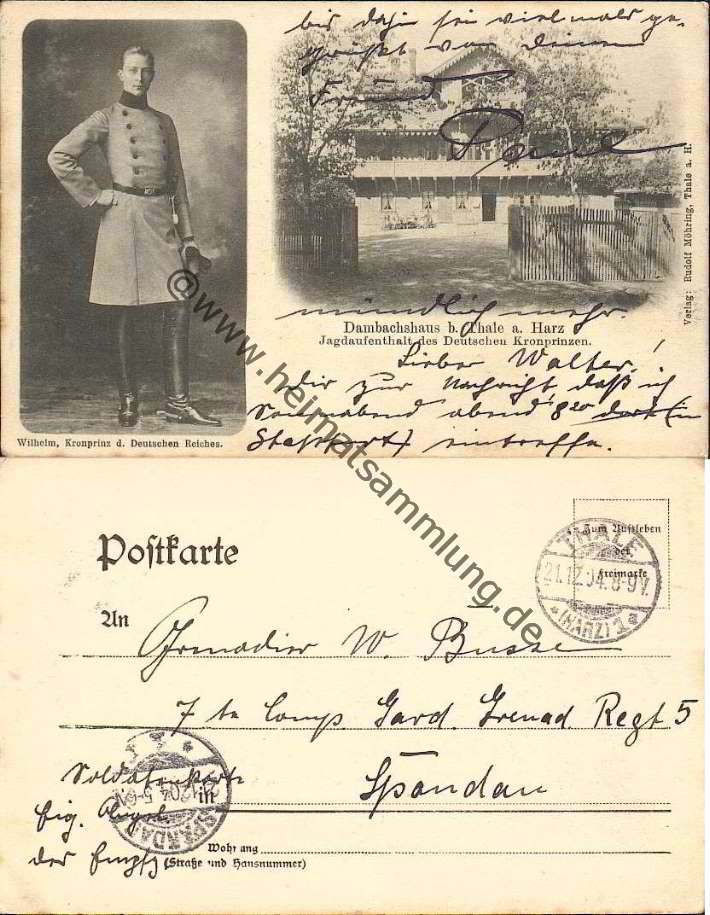 bis dahin sei vielmals ge-
grüßt von Deinem
Freund
Paul
Verlag: Rudolf Möhring, Thale a. H.
mündlich mehr.
Dambachshaus b. Thale a. Harz
Jagdaufenthalt des Deutschen Kronprinzen.
Lieber Walter!
Dir zur Nachricht daß ich
Sonnabend abend 8²⁰ dort (in
Staßfurt) eintreffe.
Wilhelm, Kronprinz d. Deutschen Reiches.
©www.heimatsammlung.de
Postkarte
Zum Aufkleben
der
Freimarke
THALE
21.12.04.8-9V.
*(HARZ)1*
An
Grenadier W. Busse
7te Comp. Gard. Grenad Regt 5
Soldatenkarte
in
Spandau
SPANDAU
12.04.5-6N
Eig. Angel.
der Empfg.
Wohnung
(Straße und Hausnummer)